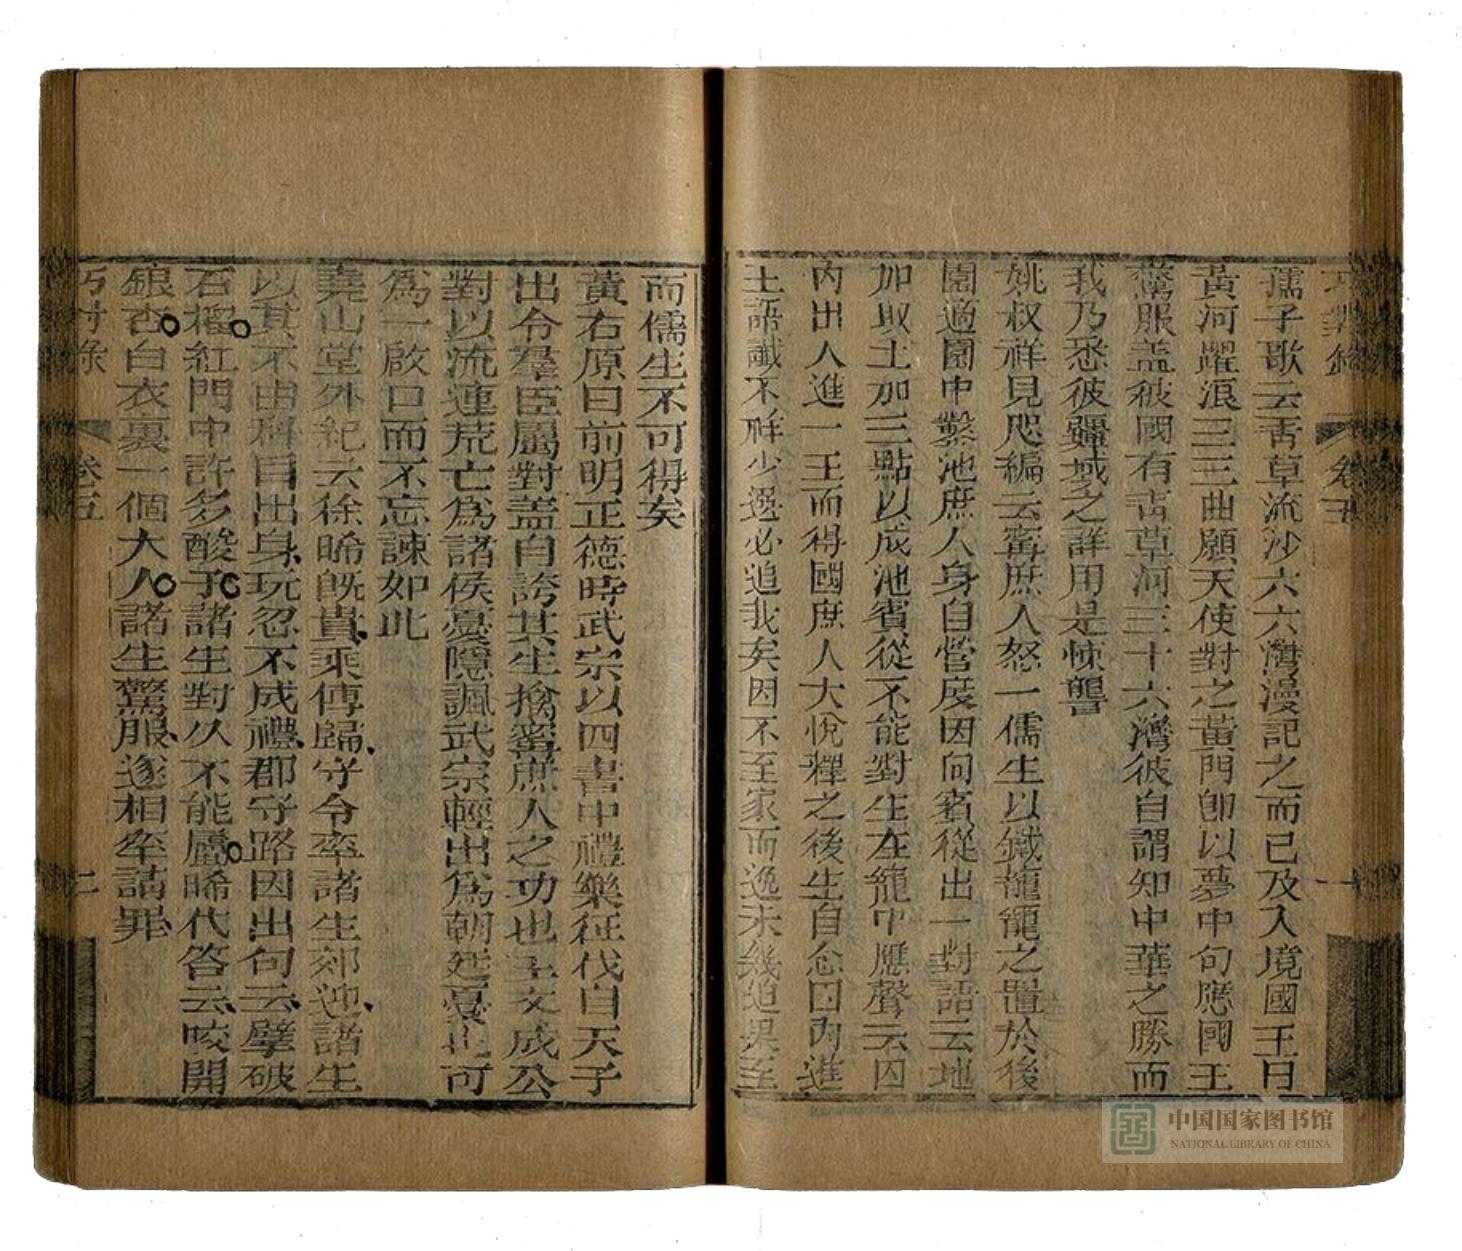 孺子歌云青草流沙六六灣漫記之而已及入境國王曰
黃河躍浪三三曲願天使對之黃門卽以夢中句應國王
驚服盖彼國有青草河三十六灣彼自謂知中華之勝而
我乃悉彼疆域之詳用是悚讋
姚叔祥見咫編云寗庶人怒一儒生以鐵櫳籠之置於後
園適園中鑿池庶人身自營度因向賓從出一對語云地
加取土加三點以成池賓從不能對生在籠中應聲云囚
內出人進一王而得國庶人大悅釋之後生自念囚內進
土語讖不祥少選必追我矣因不至家而逸未幾追果至
而儒生不可得矣
黃右原曰前明正德時武宗以四書中禮樂征伐自天子
出令羣臣屬對盖自誇其生擒寗庶人之功也王文成公
對以流連荒亡爲諸侯憂隱諷武宗輕出爲朝廷憂也可
爲一啟口而不忘諫如此
堯山堂外紀云徐晞旣貴乘傳歸守令率諸生郊迎諸生
以其不由科目出身玩忽不成禮郡守路因出句云擘破
石榴紅門中許多酸子諸生對久不能屬晞代答云咬開
銀杏白衣裏一個大人諸生驚服遂相率請罪
巧對錄 卷五 二
中国国家图书馆
NATIONAL LIBRARY OF CHINA